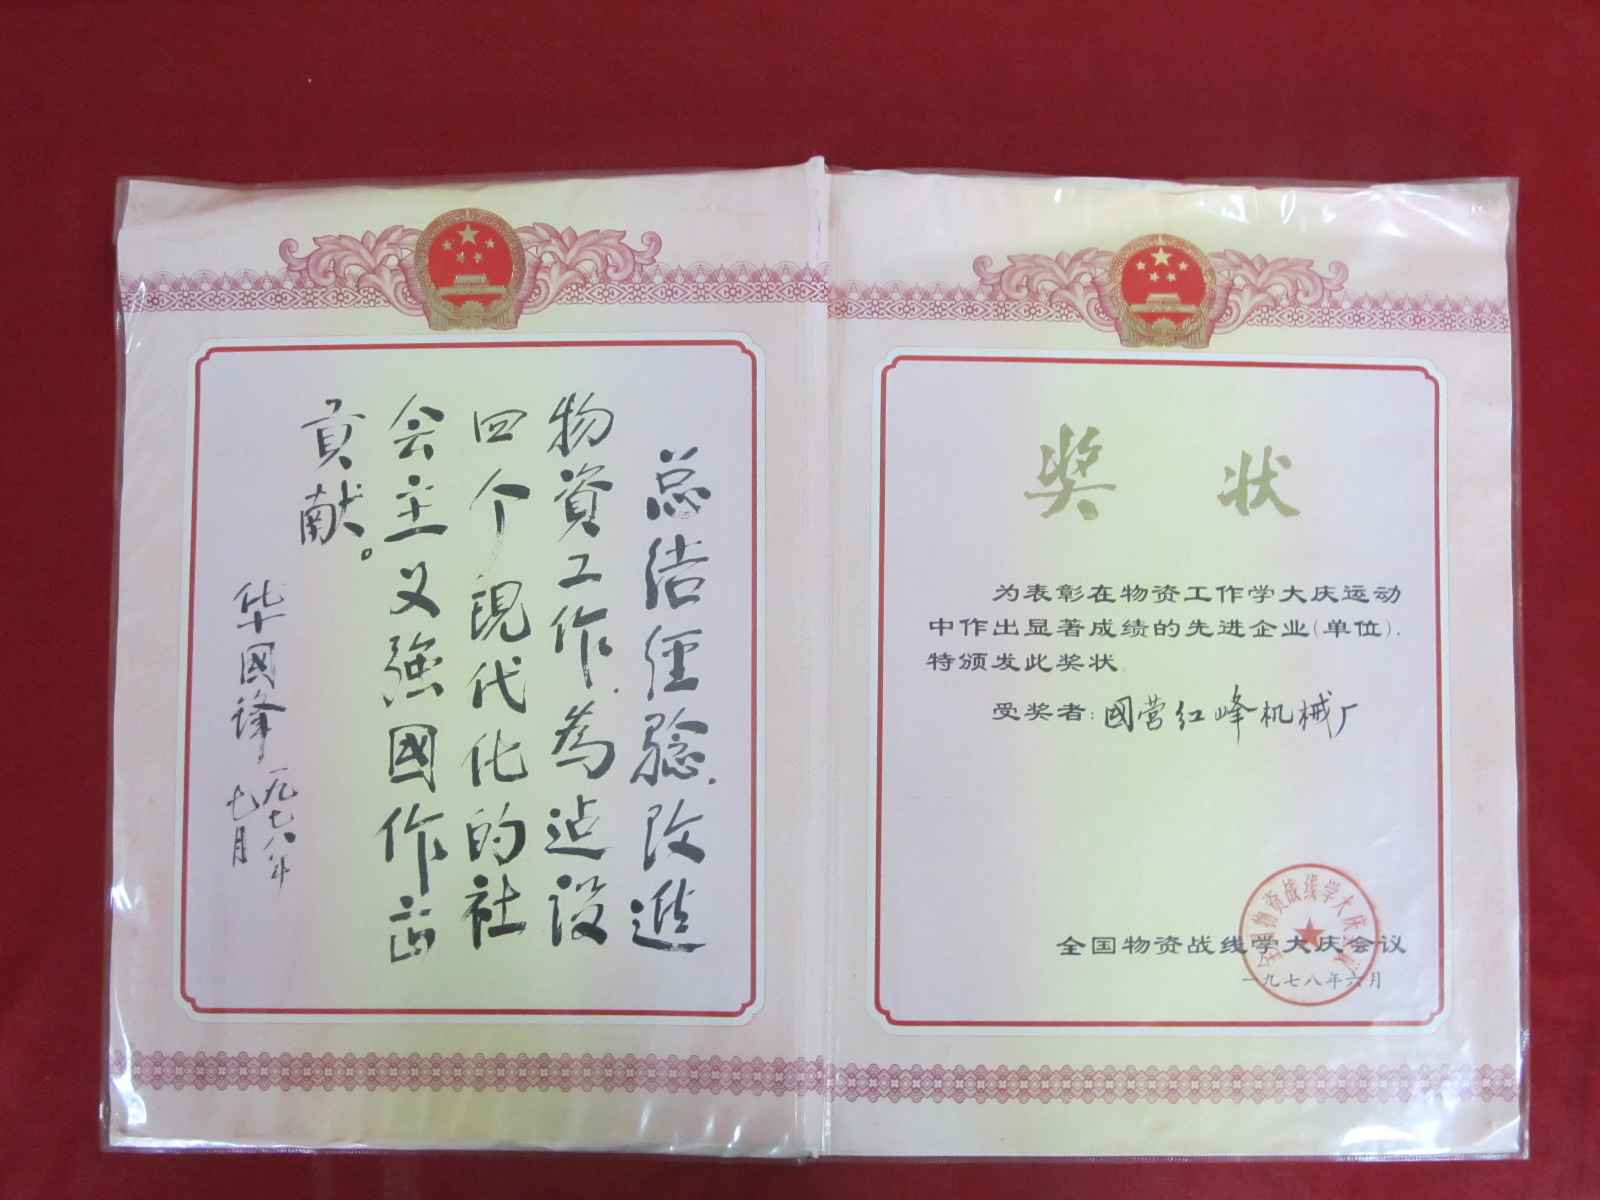 总结经验,改進
物資工作,為迠设
四个現代化的社
会主义强國作出
貢献。
华國锋 一九七八年
七月
奖状
为表彰在物资工作学大庆运动
中作出显著成绩的先进企业(单位),
特颁发此奖状。
受奖者:國营红峰机械厂
全国物资战线学大庆会议
一九七八年六月
全国物资战线学大庆会议